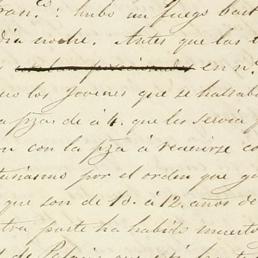 hubo un fuego bast
dia noche. Antes que las
en n.º
los Jovenes que se hallaba
pza. de á 4. que les servia p
con la pza á reunirse co
por el orden que gu
que son de 10. á 12. años de
tra parte ha habido muerto